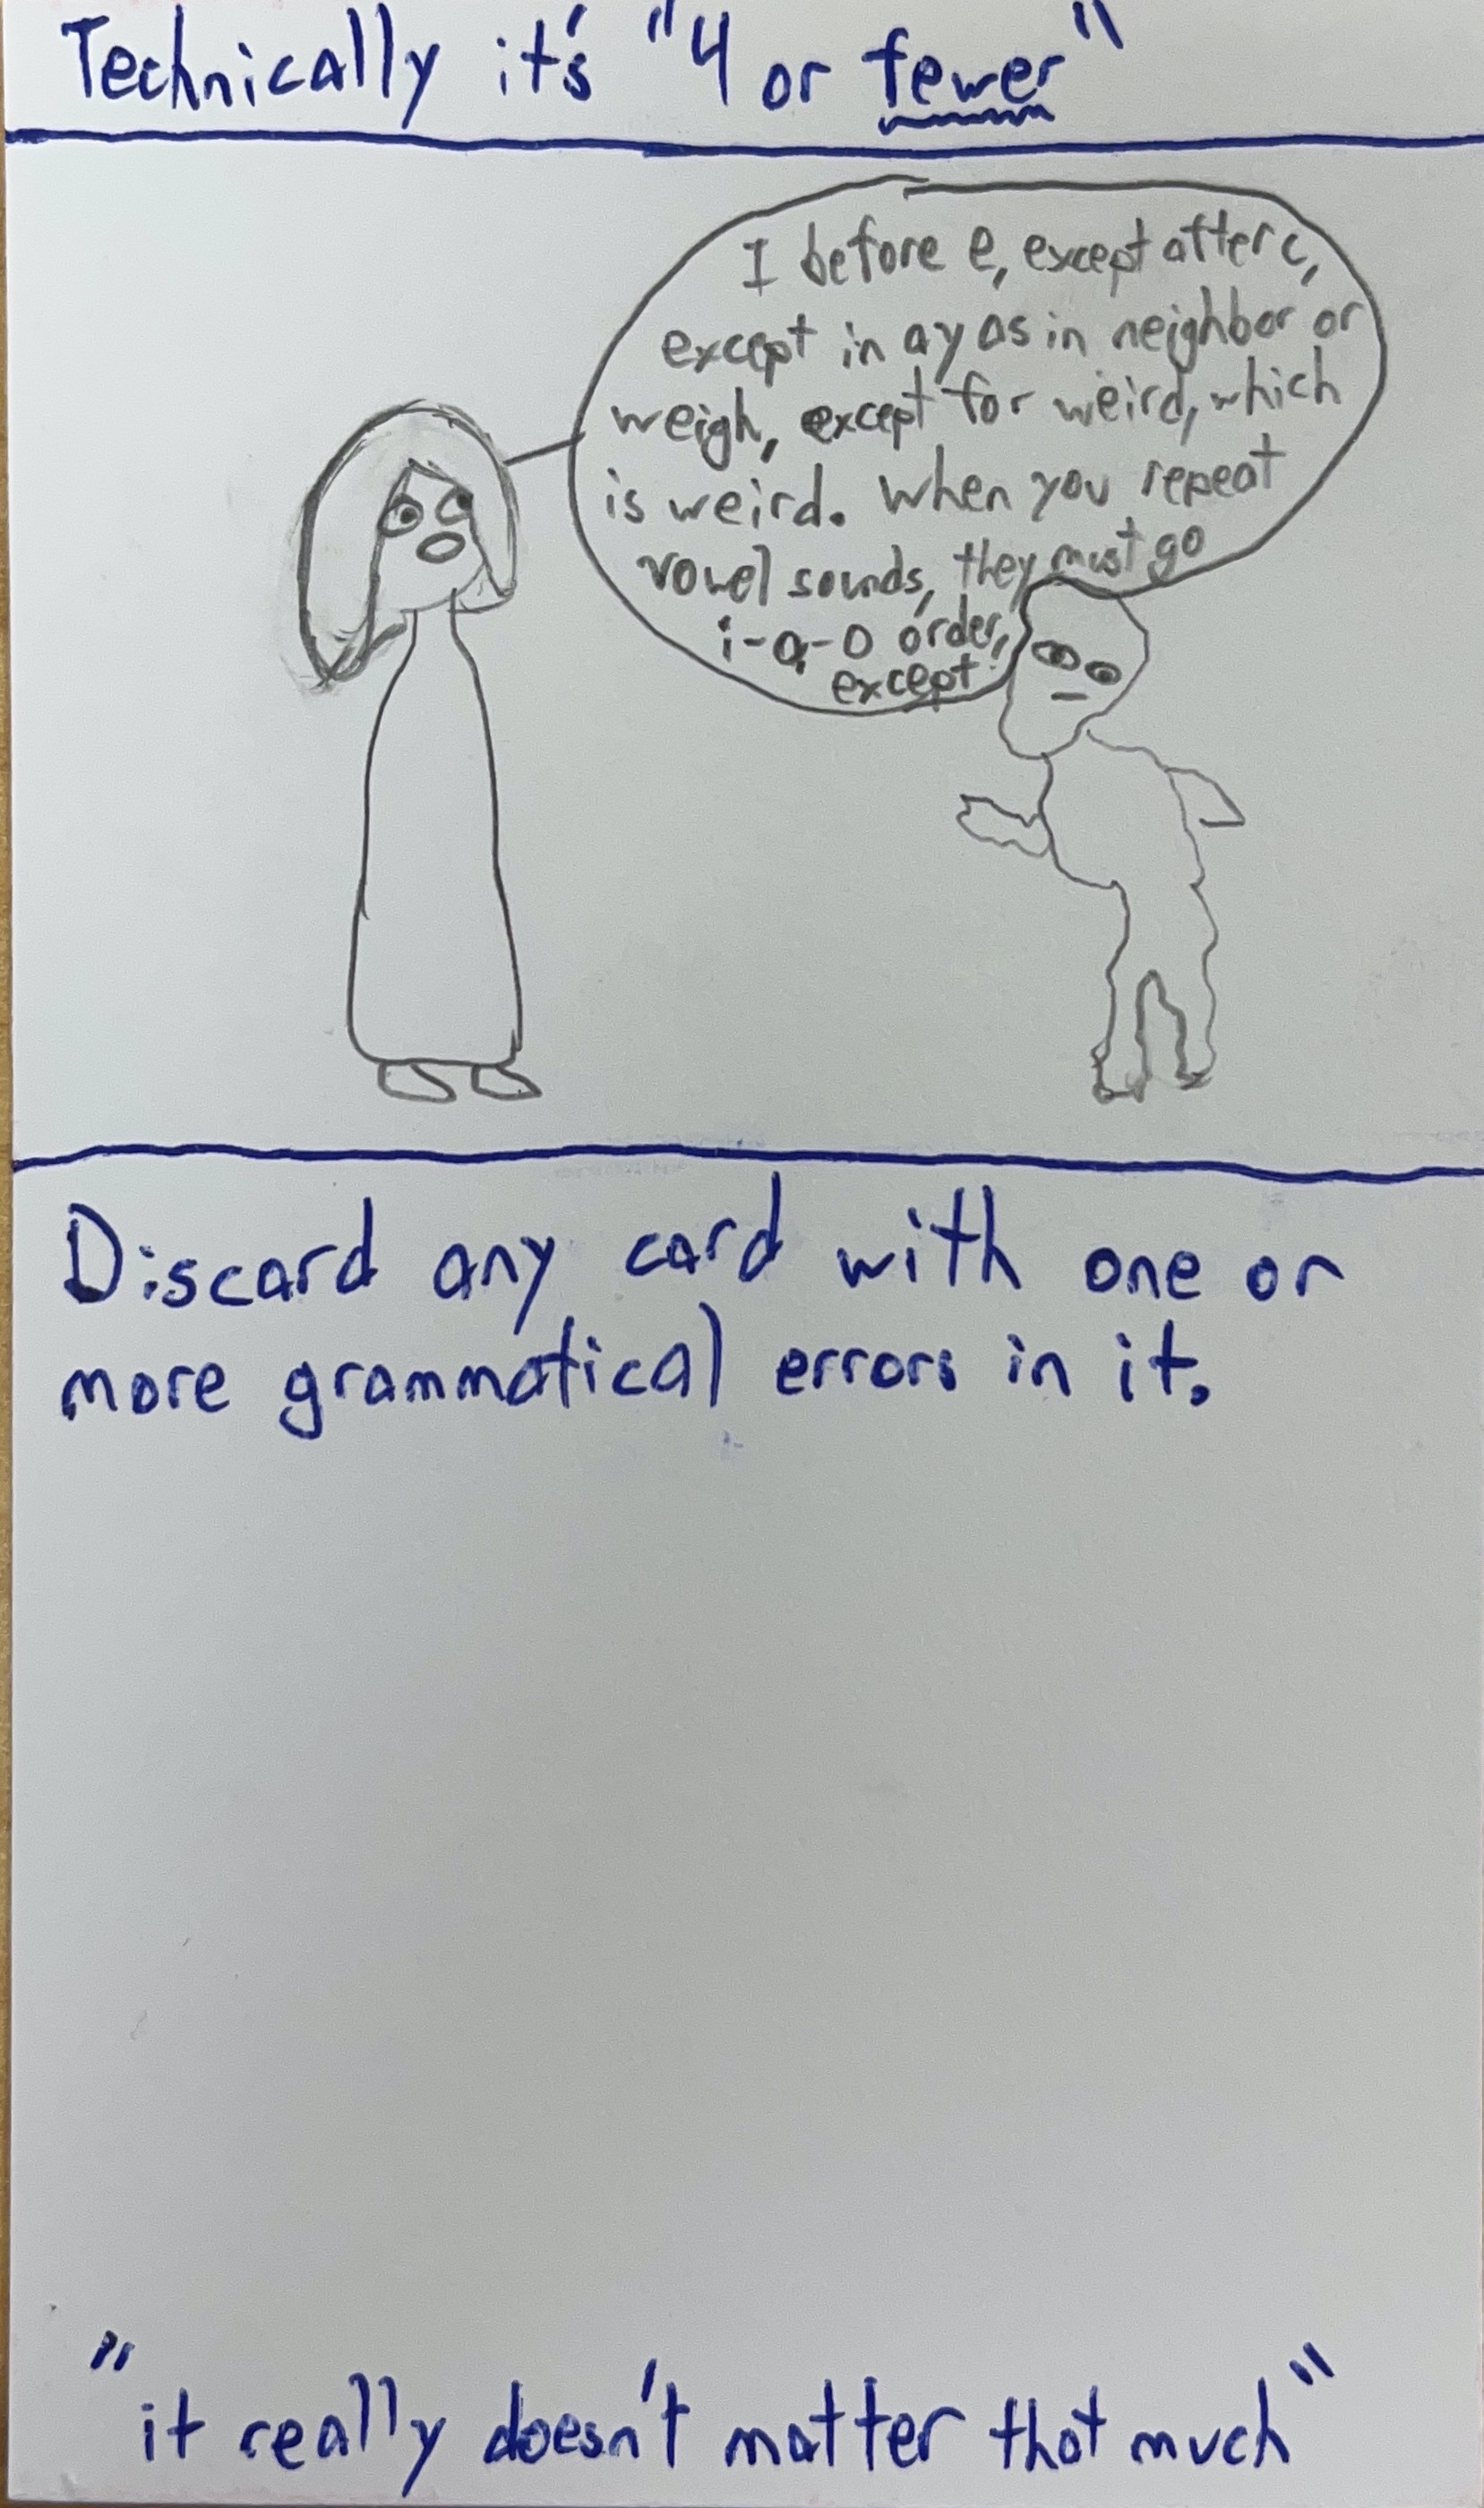 Technically it's "4 or fewer"
I before e, except after c,
except in ay as in neighbor or
weigh, except for weird, which
is weird. When you repeat
vowel sounds, they must go
i-a-o order,
except
Discard any card with one or
more grammatical errors in it.
"it really doesn't matter that much"